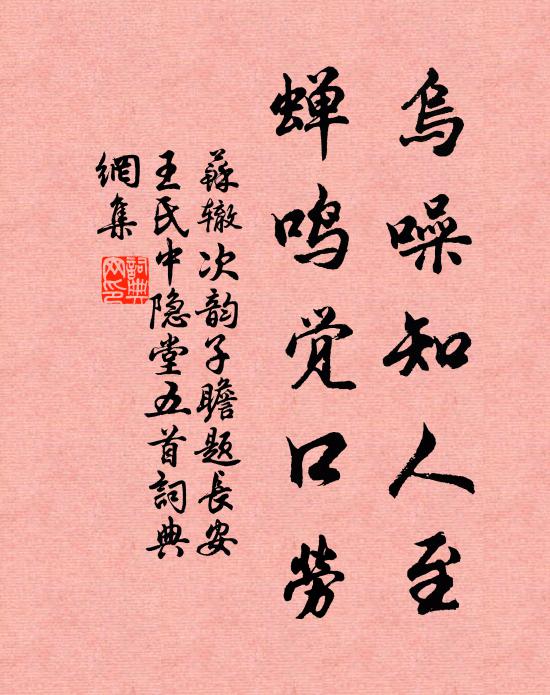 烏噪知人至
蝉鸣觉口劳
蘇辙次韵子瞻题长安
王氏中隐堂五首詞典
網集
詞典
网印